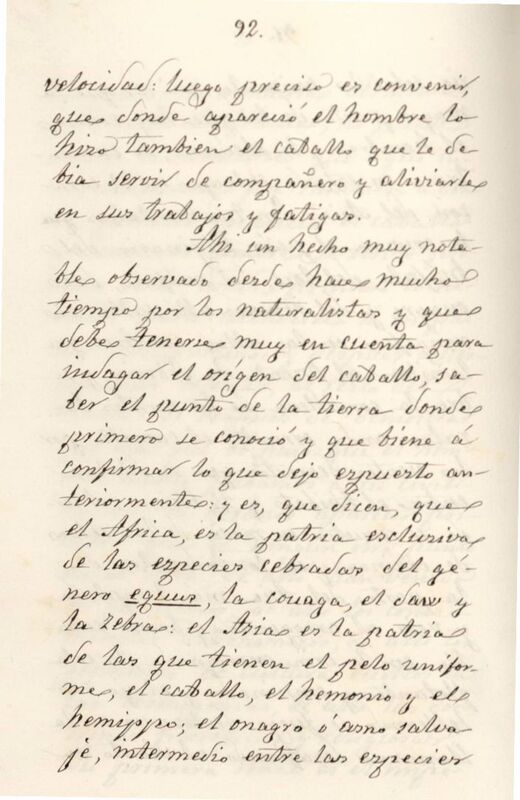 92.
velocidad: luego preciso es convenir,
que donde apareció el hombre lo
hizo tambien el caballo que le de
bia servir de compañero y aliviarle
en sus trabajos y fatigas.
Ahi un hecho muy nota-
ble observado desde hace mucho
tiempo por los naturalistas y que
debe tenerse muy en cuenta para
indagar el orígen del caballo, sa-
ber el punto de la tierra donde
primero se conoció y que biene á
confirmar lo que dejo espuesto an-
teriormente: y es, que dicen, que
el Africa, es la patria esclusiva
de las especies cebradas del gé-
nero equus, la couaga, el daw y
la zebra: el Asia es la patria
de las que tienen el pelo unifor-
me, el caballo, el hemonio y el
hemippo; el onagro ó asno salva
je, intermedio entre las especies